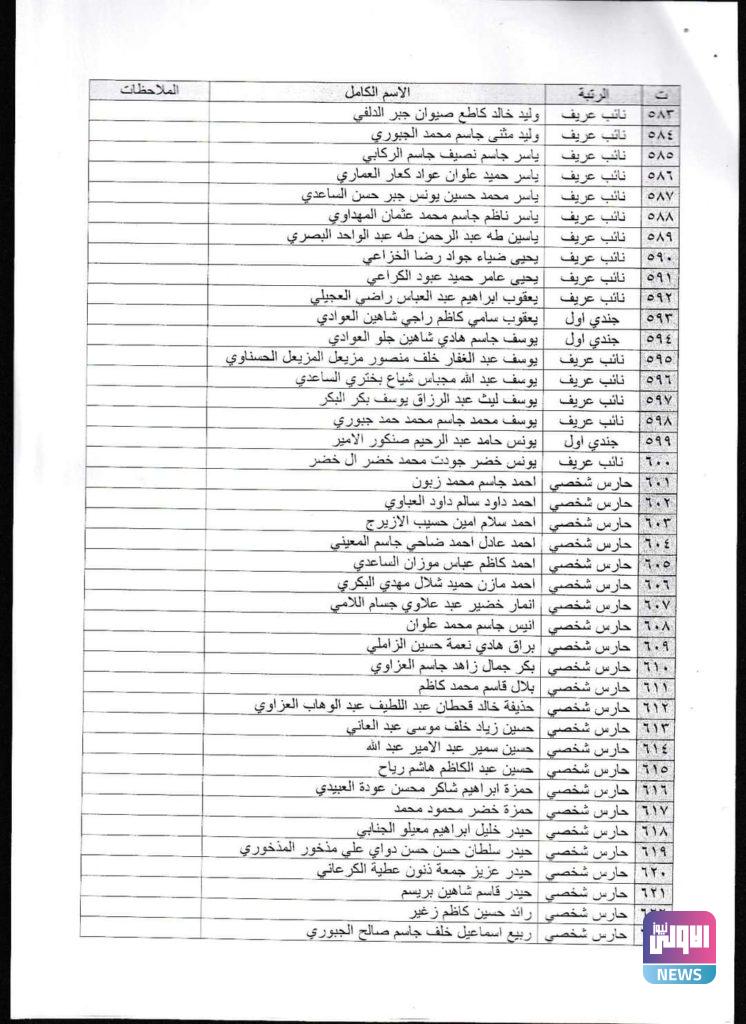 ت الرتبة الاسم الكامل الملاحظات
٥٨٣ نائب عريف وليد خالد كاطع صيوان جبر الدلفي
٥٨٤ نائب عريف وليد مثنى جاسم محمد الجبوري
٥٨٥ نائب عريف ياسر جاسم نصيف جاسم الركابي
٥٨٦ نائب عريف ياسر حميد علوان عواد كعار العماري
٥٨٧ نائب عريف ياسر محمد حسين يونس جبر حسن الساعدي
٥٨٨ نائب عريف ياسر ناظم جاسم محمد عثمان المهداوي
٥٨٩ نائب عريف ياسين طه عبد الرحمن طه عبد الواحد البصري
٥٩٠ نائب عريف يحيى ضياء جواد رضا الخزاعي
٥٩١ نائب عريف يحيى عامر حميد عبود الكراعي
٥٩٢ نائب عريف يعقوب ابراهيم عبد العباس راضي العجيلي
٥٩٣ جندي اول يعقوب سامي كاظم راجي شاهين العوادي
٥٩٤ جندي اول يوسف جاسم هادي شاهين جلو العوادي
٥٩٥ نائب عريف يوسف عبد الغفار خلف منصور مزيعل المزيعل الحسناوي
٥٩٦ نائب عريف يوسف عبد الله مجباس شياع بختري الساعدي
٥٩٧ نائب عريف يوسف ليث عبد الرزاق يوسف بكر البكر
٥٩٨ نائب عريف يوسف محمد جاسم محمد حمد جبوري
٥٩٩ جندي اول يونس حامد عبد الرحيم صنكور الامير
٦٠٠ نائب عريف يونس خضر جودت محمد خضر ال خضر
٦٠١ حارس شخصي احمد جاسم محمد زبون
٦٠٢ حارس شخصي احمد داود سالم داود العباوي
٦٠٣ حارس شخصي احمد سلام امين حسيب الازيرج
٦٠٤ حارس شخصي احمد عادل احمد ضاحي جاسم المعيني
٦٠٥ حارس شخصي احمد كاظم عباس موزان الساعدي
٦٠٦ حارس شخصي احمد مازن حميد شلال مهدي البكري
٦٠٧ حارس شخصي انمار خضير عبد علاوي جسام اللامي
٦٠٨ حارس شخصي انيس جاسم محمد علوان
٦٠٩ حارس شخصي براق هادي نعمة حسين الزاملي
٦١٠ حارس شخصي بكر جمال زاهد جاسم العزاوي
٦١١ حارس شخصي بلال قاسم محمد كاظم
٦١٢ حارس شخصي حذيفة خالد قحطان عبد اللطيف عبد الوهاب العزاوي
٦١٣ حارس شخصي حسين زياد خلف موسى عبد العاني
٦١٤ حارس شخصي حسين سمير عبد الامير عبد الله
٦١٥ حارس شخصي حسين عبد الكاظم هاشم رياح
٦١٦ حارس شخصي حمزة ابراهيم شاكر محسن عودة العبيدي
٦١٧ حارس شخصي حمزة خضر محمود محمد
٦١٨ حارس شخصي حيدر خليل ابراهيم معيلو الجنابي
٦١٩ حارس شخصي حيدر سلطان حسن حسن دواي علي مذخور المذخوري
٦٢٠ حارس شخصي حيدر عزيز جمعة ذنون عطية الكرعاني
٦٢١ حارس شخصي حيدر قاسم شاهين بريسم
٦٢٢ حارس شخصي رائد حسين كاظم زغير
حارس شخصي ربيع اسماعيل خلف جاسم صالح الجبوري
الاولى نيوز
NEWS